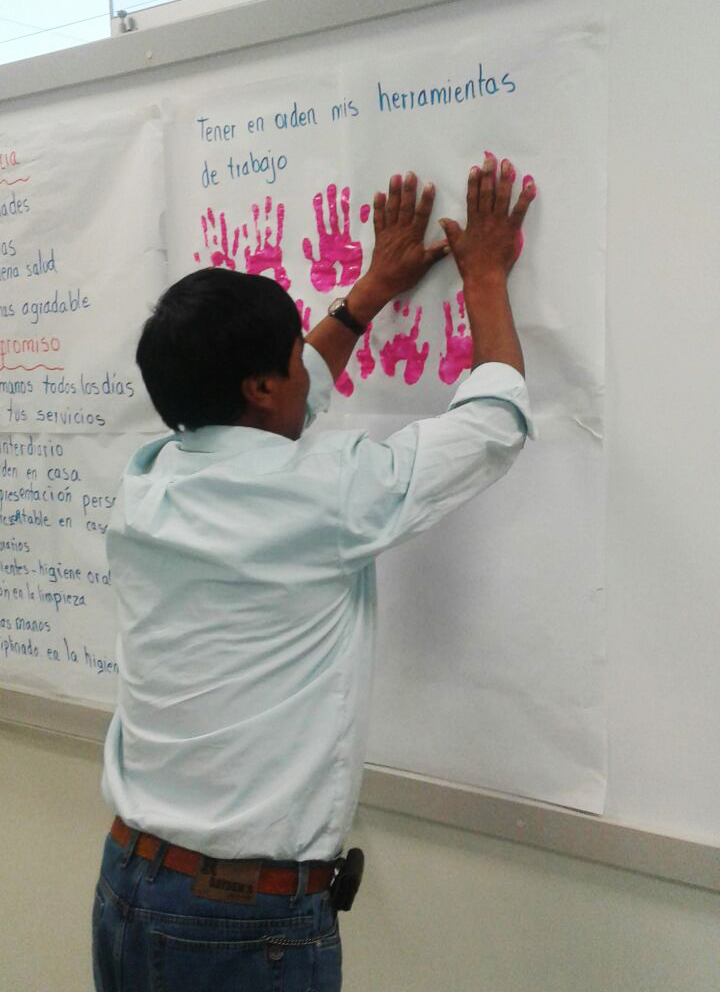 Tener en orden mis herramientas
de trabajo
ades
as
ena salud
as agradable
promiso
manos todos los días
tus servicios
interdiario
den en casa
presentación pers
en casa
ientes - higiene oral
ón en la limpieza
as manos
iplinado en la higien